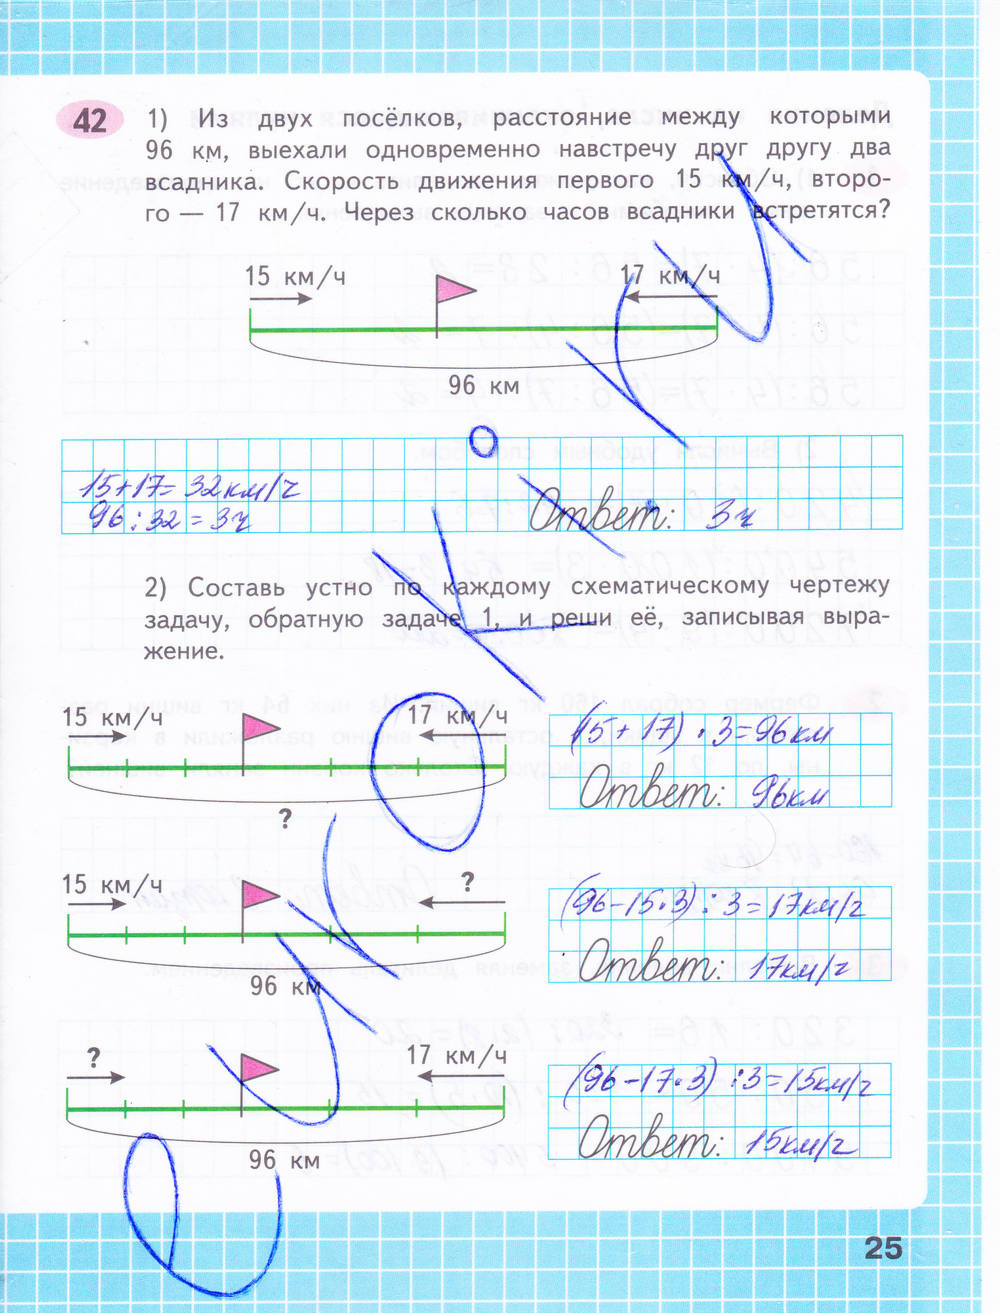 42 1) Из двух посёлков, расстояние между которыми
96 км, выехали одновременно навстречу друг другу два
всадника. Скорость движения первого 15 км/ч, второ-
го — 17 км/ч. Через сколько часов всадники встретятся?
15 км/ч 17 км/ч
96 км
15+17= 32км/ч
96:32 = 3ч Ответ: 3ч
2) Составь устно по каждому схематическому чертежу
задачу, обратную задаче 1, и реши её, записывая выра-
жение.
15 км/ч 17 км/ч
?
(15+17)·3=96км
Ответ: 96км
15 км/ч ?
96 км
(96-15·3):3=17км/ч
Ответ: 17км/ч
? 17 км/ч
96 км
(96-17·3):3=15км/ч
Ответ: 15км/ч
25